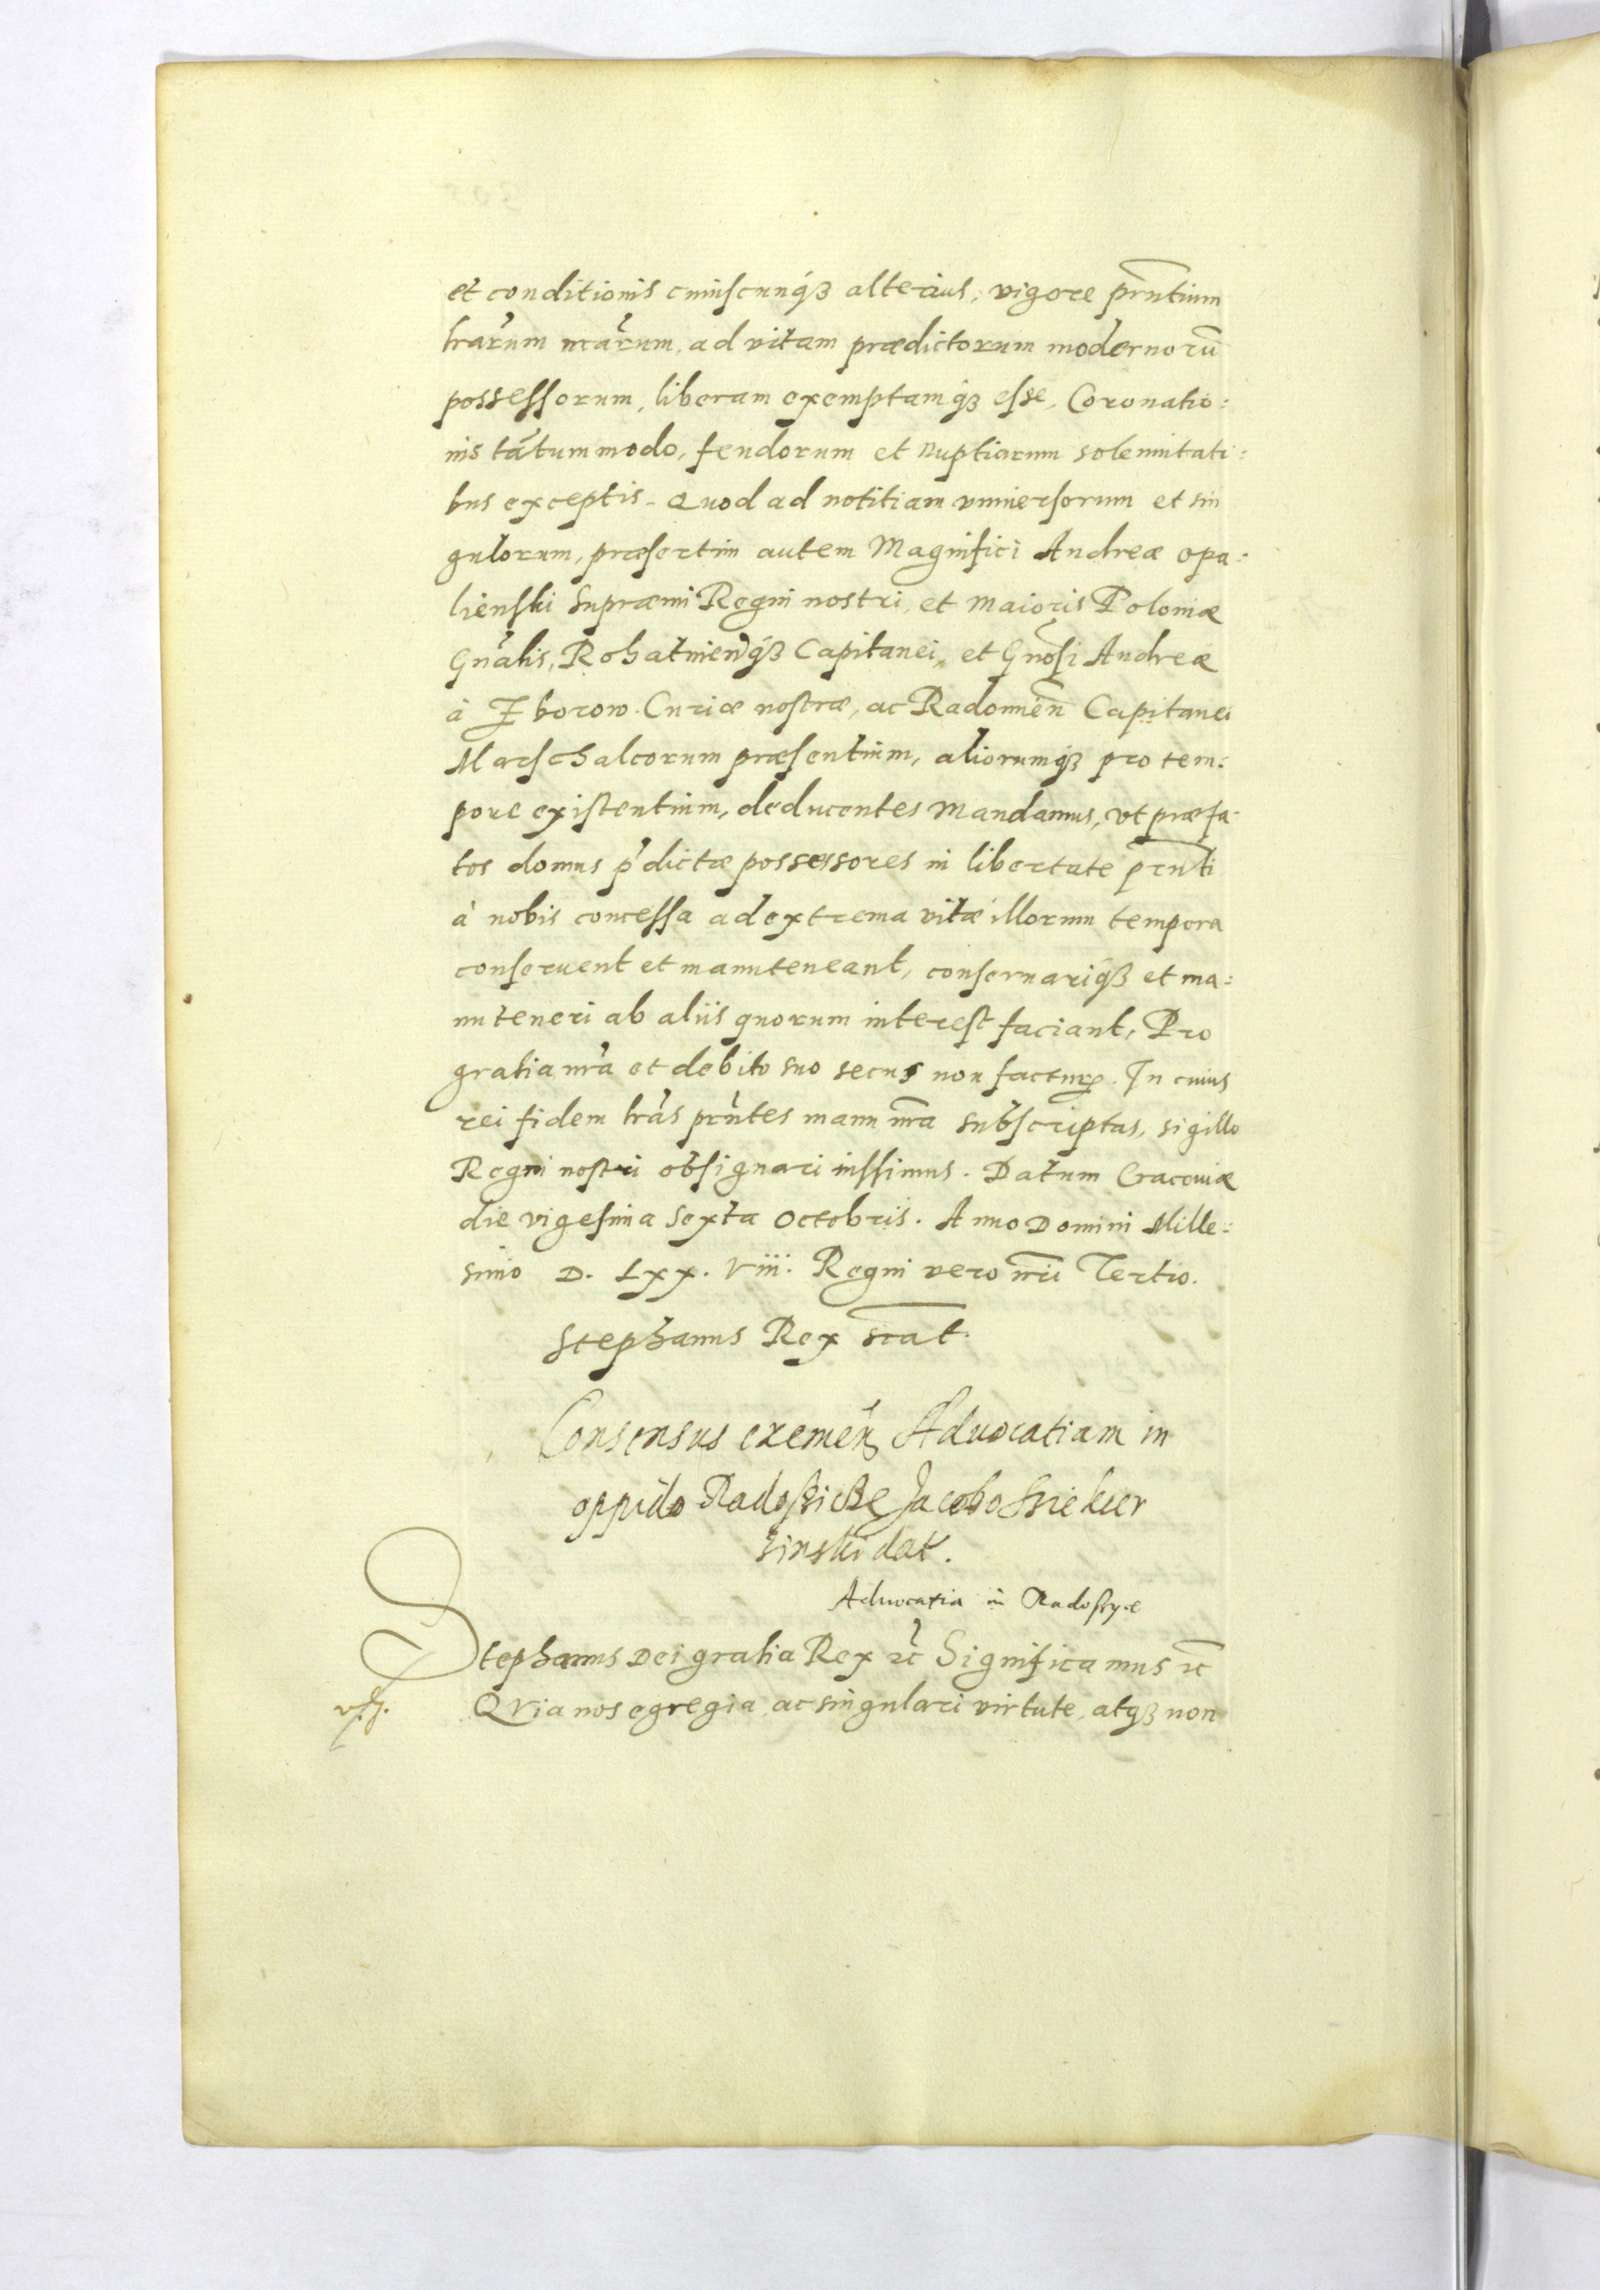 et conditionis cuiuscunq́ꝫ alterius, vigore pr̃ntium
lrãrum nrãrum, ad vitam prædictorum modernorũ
possessorum, liberam exemptamq́ꝫ esse, Coronatio:
nis tãtummodo, feudorum et nuptiarum solennitati:
bus exceptis. Quod ad notitiam vniuersorum et sin
gulorum, præsertim autem Magnifici Andreæ Opa:
lienski Supræmi Regni nostri, et Maioris Poloniæ
Gnãlis, Rohatinen̄q́ꝫ Capitanei, et Gnõsi Andreæ
à Zborow. Curiæ nostræ, ac Radomien̄ Capitanei
Marschalcorum præsentium, aliorumq́ꝫ pro tem:
pore existentium, deducentes Mandamus, vt præfa:
tos domus p̃dictæ possessores in libertate pr̃nti
à nobis concessa ad extrema vitæ illorum tempora
conseruent et manuteneant, conseruariq́ꝫ et ma:
nuteneri ab aliis quorum interest faciant, Pro
gratia nrã et debito suo secus non facturꝭ. In cuius
rei fidem lrãs pr̃ntes manu nrã subscriptas, sigillo
Regni nostri obsignari iussimus. Datum Cracouiæ
die vigesima Sexta Octobris. Anno Domini Mille:
simo D. Lxx. viii. Regni vero nr̃i Tertio.
Stephanus Rex s̃c̃at.
Consensus exemen̄ Aduocatiam in
oppido Radossicze Jacobo Sie kier
zinski dat.
Aduocatia in Radossyce
Stephanus Dei gratia Rex ⁊c̃ Significamus ⁊c̃
QVia nos egregia ac singulari virtute, atqꝫ non